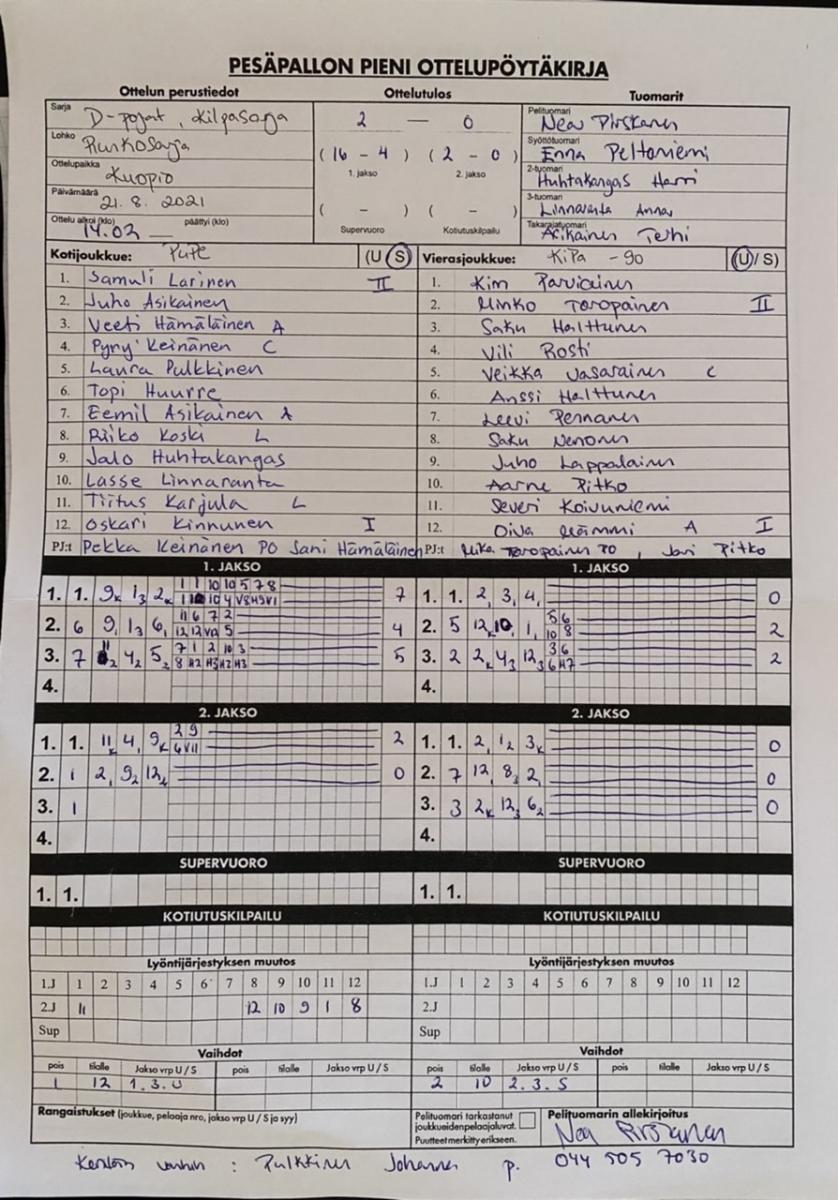 PESÄPALLON PIENI OTTELUPÖYTÄKIRJA
Ottelun perustiedot Ottelutulos Tuomarit
Sarja D-pojat, Kilpasarja
Lohko Runkosarja
Ottelupaikka Kuopio
Päivämäärä 21.8.2021
Ottelu alkoi (klo) 14.02 päättyi (klo)
2 — 0
(16 - 4) (2 - 0)
1. jakso 2. jakso
( - ) ( - )
Supervuoro Kotiutuskilpailu
Pelituomari Nea Pirskanen
Syöttötuomari Enna Peltoniemi
2-tuomari Huhtakangas Harri
3-tuomari Linnaranta Anna
Takarajatuomari Asikainen Terhi
Kotijoukkue: PuPe (U S)
1. Samuli Larinen II
2. Juho Asikainen
3. Veeti Hämäläinen A
4. Pyry Keinänen C
5. Laura Pulkkinen
6. Topi Huurre
7. Eemil Asikainen A
8. Riiko Koski L
9. Jalo Huhtakangas
10. Lasse Linnaranta
11. Tiitus Karjula L
12. Oskari Kinnunen I
PJ:t Pekka Keinänen PO Sani Hämäläinen
Vierasjoukkue: KiPa -90 (U/S)
1. Kim Parviainen
2. Minko Toropainen II
3. Saku Halttunen
4. Vili Rosti
5. Veikka Vasarainen C
6. Anssi Halttunen
7. Leevi Pennanen
8. Saku Nenonen
9. Juho Lappalainen
10. Aarne Pitko
11. Severi Koivuniemi
12. Oiva Lämmi A I
PJ:t Mika Toropainen PO, Jari Pitko
1. JAKSO
1. 1. 9K 1 3 2K 1 1 10 10 5 7 8 7
2. 6 9, 1 3 6, 11 6 7 2 4
12 12 VA 5
3. 7 4 2 5 2 7 1 2 10 3 5
8 H2 H3 H2 H3
4.
1. JAKSO
1. 1. 2, 3, 4, 0
2. 5 12K 10, 1, 5 6 2
10 8
3. 2 2K 4 3 12 3 3 6 2
6 H7
4.
2. JAKSO
1. 1. 11K 4, 9K 2 9 2
6 V11
2. 1 2, 9 2 12 0
3. 1
4.
2. JAKSO
1. 1. 2, 1 2 3K 0
2. 7 12, 8 3 2, 0
3. 3 2K 12 3 6 2 0
4.
SUPERVUORO SUPERVUORO
1. 1. 1. 1.
KOTIUTUSKILPAILU KOTIUTUSKILPAILU
Lyöntijärjestyksen muutos Lyöntijärjestyksen muutos
1.J 1 2 3 4 5 6 7 8 9 10 11 12 1.J 1 2 3 4 5 6 7 8 9 10 11 12
2.J 11 12 10 9 1 8 2.J
Sup Sup
Vaihdot Vaihdot
pois tilalle Jakso vrp U / S pois tilalle Jakso vrp U / S pois tilalle Jakso vrp U / S pois tilalle Jakso vrp U / S
1 12 1.3.U 2 10 2.3.S
Rangaistukset (joukkue, pelaaja nro, jakso vrp U / S ja syy)
Pelituomari tarkastanut
joukkueiden pelaajaluvat.
Puutteet merkitty erikseen.
Pelituomarin allekirjoitus
Nea Pirskanen
Kentän vanhin : Pulkkinen Johanna p. 044 505 7030